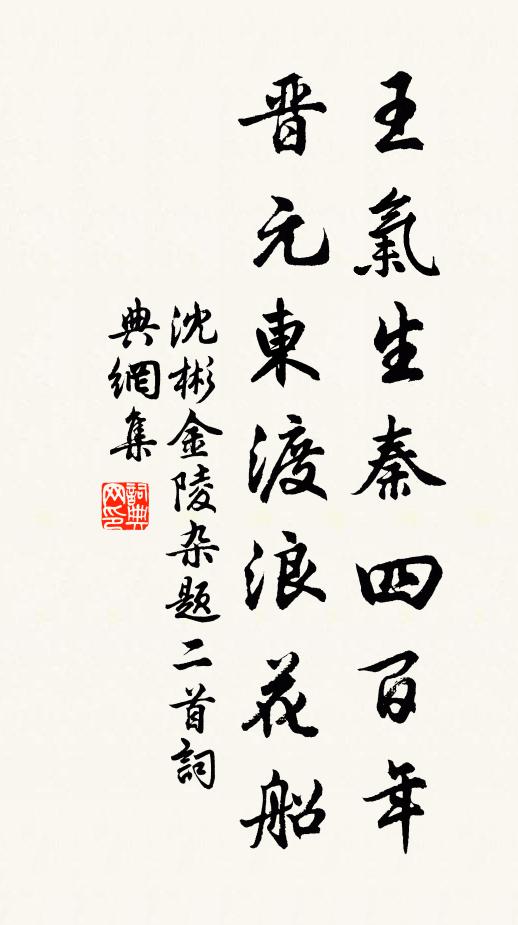 王氣生秦四百年
晋元東渡浪花船
沈彬金陵杂题二首詞
典網集
詞典网印